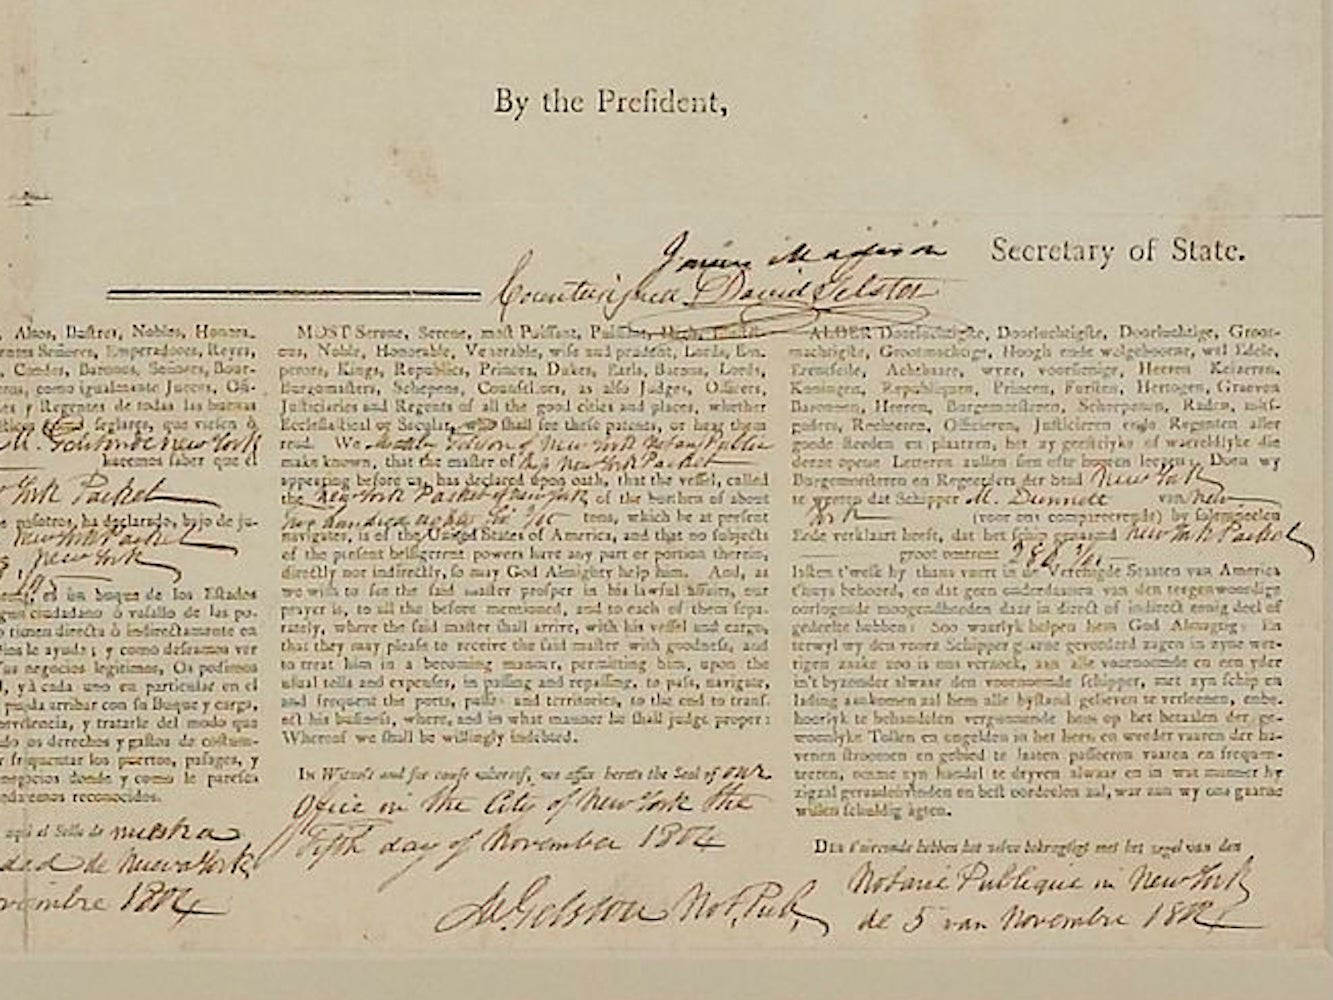 By the Preſident,
James Madison Secretary of State.
Countersigned David Gelston
, Altos, Iluſtres, Nobles, Honora-
Señores, Emperadores, Reyes,
, Condes, Barones, Señores, Bour-
como igualmente Jueces, Ofi-
y Regentes de todas las buenas
ſeglares, que vieſen ò
M. Gelston de New York
hacemos ſaber que el
York Packet
noſotros, ha declarado, bajo de ju-
New York Packet
New York
es un buque de los Eſtados
ciudadano ò vaſallo de las po-
tienen directa ò indirectamente en
le ayude; y como deſeamos ver
negocios legitimos, Os pedimos
, y à cada uno en particular en el
pueda arribar con ſu Buque y carga,
y tratarle del modo que
do os derechos y gaſtos de coſtum-
frequentar los puertos, paſages, y
negocios donde y como le pareſca
reconocidos.
aqui el Sello de nuestra
de Nueva York
1804
MOST Serene, Serene, moſt Puiſſant, Puiſſant, High, Illuſtri-
ous, Noble, Honorable, Venerable, wiſe and prudent, Lords, Em-
perors, Kings, Republics, Princes, Dukes, Earls, Barons, Lords,
Burgomaſters, Schepens, Counſellors, as alſo Judges, Officers,
Juſticiaries and Regents of all the good cities and places, whether
Eccleſiaſtical or Secular, who ſhall ſee theſe patents, or hear them
read. We Gelston of New York Notary Public
make known, that the maſter of Ship New York Packet
appearing before us, has declared upon oath, that the veſſel, called
the New York Packet of New York of the burthen of about
two hundred eighty six /95 tons, which he at preſent
navigates, is of the United States of America, and that no ſubjects
of the preſent belligerent powers have any part or portion therein,
directly nor indirectly, ſo may God Almighty help him. And, as
we wiſh to ſee the ſaid maſter proſper in his lawful affairs, our
prayer is, to all the before mentioned, and to each of them ſepa-
rately, where the ſaid maſter ſhall arrive, with his veſſel and cargo,
that they may pleaſe to receive the ſaid maſter with goodneſs, and
to treat him in a becoming manner, permitting him, upon the
uſual tolls and expenſes, in paſſing and repaſſing, to paſs, navigate,
and frequent the ports, paſſes and territories, to the end to tranſ-
act his buſineſs, where, and in what manner he ſhall judge proper:
Whereof we ſhall be willingly indebted.
In Witneſs and for cauſe whereof, we affix hereto the Seal of our
Office in the City of New York the
Fifth day of November 1804
Gelston Not, Pub,
ALDER Doorluchtigſte, Doorluchtigſte, Doorluchtige, Groot-
machtigſte, Grootmachtige, Hoogh ende welgeboorne, wel Edele,
Erentfeſte, Achtbaare, wyze, voorſienige, Heeren Keizeren,
Koningen, Republiquen, Princen, Furſten, Hertogen, Graeven
Baronnen, Heeren, Burgemeeſteren, Scheepenen, Raden, mitſ-
gaders, Rechteren, Officieren, Juſticieren ende Regenten aller
goede ſteeden en plaatzen, het zy geeſtelyke of waereldlyke die
deeze opene Letteren zullen ſien ofte hooren leezen; Doen wy
Burgemeeſteren en Regeerders der Stad New York
te weeten dat Schipper M. Dunnett van New
York (voor ons compareerende) by ſolemneelen
Eede verklaart heeft, dat het ſchip genaamd New York Packet
groot omtrent 286 /95
laſten t'welk hy thans voert in de Vereenigde Staaten van America
t'huys behoord, en dat geen onderdaanen van den teegenwoordige
oorlogende moogendheeden daar in direct of indirect eenig deel of
gedeelte hebben: Soo waarlyk helpen hem God Almagtig: En
terwyl wy den voorz Schipper gaarne gevorderd zagen in zyne wet-
tigen zaake zoo is ons verzoek, aan alle voornoemde en een yder
in't byzonder alwaar den voornoemde ſchipper, met zyn ſchip en
lading aankomen zal hem alle byſtand gelieven te verleenen, ende
hoorlyk te behandelen vergunnende hem op het betaalen der ge-
woonlyke Tollen en ongelden in het heen en weeder vaaren der ha-
venen ſtroomen en gebied te laaten paſſeeren vaaren en frequen-
teeren, omme zyn handel te dryven alwaar en in wat manier hy
zigzal geraadenvinden en beſt oordeelen zal, waar aan wy ons gaarne
willen ſchuldig agten.
Des t'oirconde hebben het zelve bekragtigt met het zegel van den
Notarie Publique in New York
de 5 van November 1804